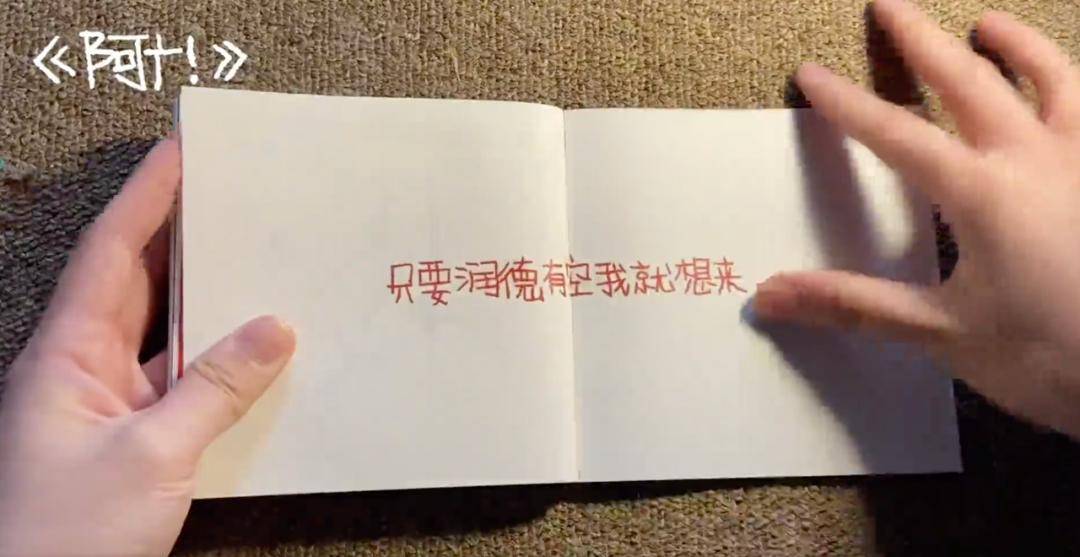 《阿十！》
只要润德有空我就想来